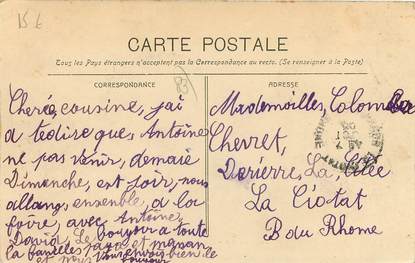 15 €
CARTE POSTALE
Tous les Pays étrangers n'acceptent pas la Correspondance au recto. (Se renseigner à la Poste)
CORRESPONDANCE
83
Cheré, cousine, jai
a tedire que, Antoine
ne pas venir, demain
Dimanche, est soir, nous
allong, ensemble, a la
foire, avec Antoine,
David, Le bonjour a toute
la famille, papa et maman
et nous envois bien le
bonjour
ADRESSE
Mademoiselles, Colombe
Cherret,
Derierre, La,
La Ciotat
B du Rhome